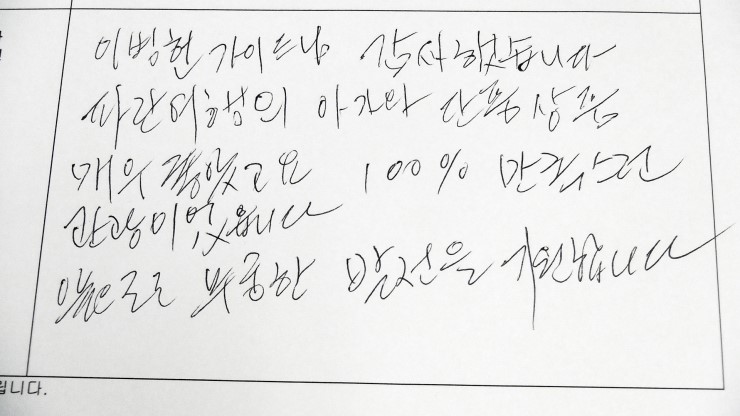 이병헌 가이드님 감사했습니다
파란여행의 아기와 단품상품
개의 좋았고요 100% 만족스런
관광이었습니다
앞으로도 무궁한 발전을 기원합니다
립니다.